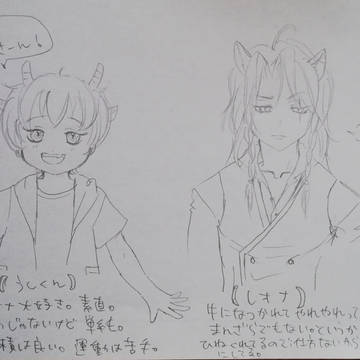 さーん!
【うしくん】
ナ大好き。素直。
じゃないけど単純。
績は良い。運動は苦手。
【レオナ】
牛になつかれてやれやれって
まんざらでもない。ていうか
ひねくれてるので仕方ないから
にしてる。